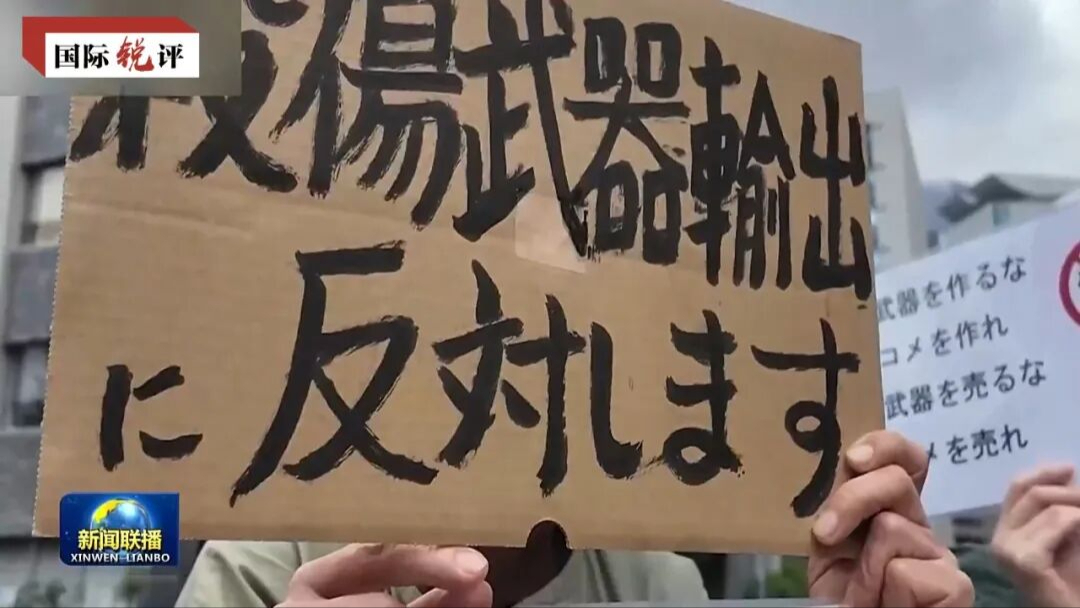 国际锐评
殺傷武器輸出
に反対します
武器を作るな
コメを作れ
武器を売るな
メを売れ
新闻联播
XINWEN LIANBO